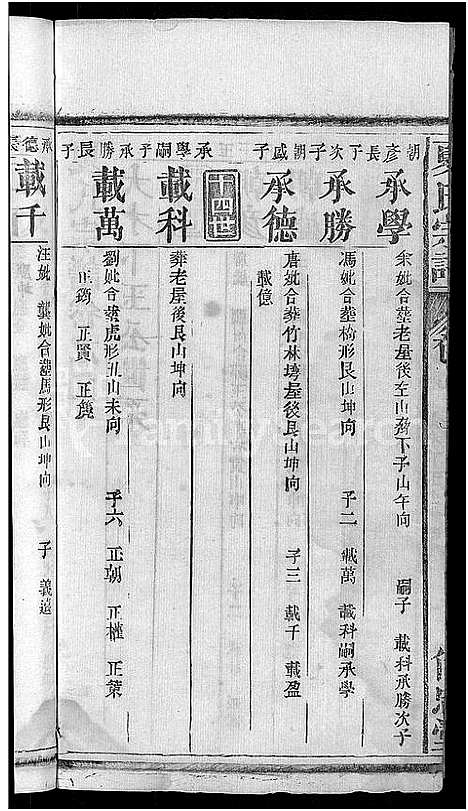 朝彥長子
承學
余妣合塟老屋後左山蒋下子山午向 嗣子 載科承勝次子
次子
承勝
馮妣合塟橋形艮山坤向 子二 載萬 載科嗣承學
朝盛子
承德
唐妣合塟竹林塆屋後艮山坤向 子三 載千 載盈
載億
十四世
承學嗣子
載科
葬老屋後艮山坤向
承勝長子
載萬
劉妣合葬虎形丑山未向 子六 正朝 正權 正榮
正筠 正賢 正篪
承德長
載千
汪妣 龔妣合塟馬形艮山坤向 子 義遠